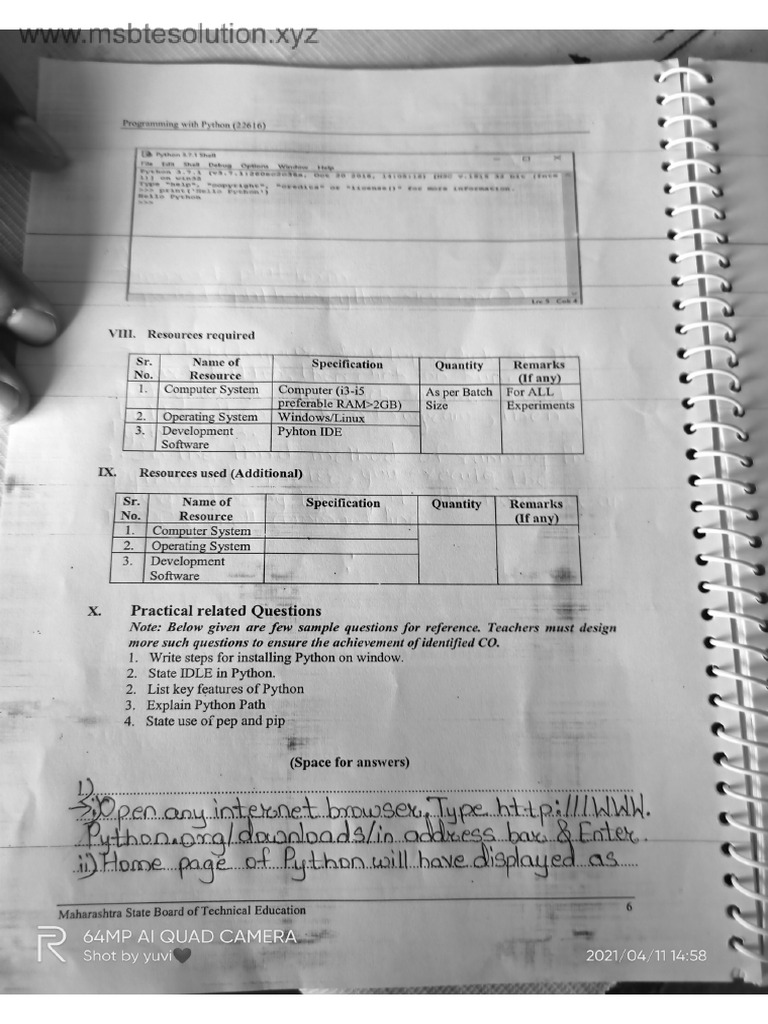 www.msbtesolution.xyz
Programming with Python (22616)
Python 3.7.1 Shell
File Edit Shell Debug Options Window Help
Type "help", "copyright", "credits" or "license()" for more information.
>>> print('Hello Python')
Hello Python
>>>
Ln: 5 Col: 4
VIII. Resources required
Sr. No. Name of Resource Specification Quantity Remarks (If any)
1. Computer System Computer (i3-i5 preferable RAM>2GB) As per Batch Size For ALL Experiments
2. Operating System Windows/Linux
3. Development Software Pyhton IDE
IX. Resources used (Additional)
Sr. No. Name of Resource Specification Quantity Remarks (If any)
1. Computer System
2. Operating System
3. Development Software
X. Practical related Questions
Note: Below given are few sample questions for reference. Teachers must design
more such questions to ensure the achievement of identified CO.
1. Write steps for installing Python on window.
2. State IDLE in Python.
2. List key features of Python
3. Explain Python Path
4. State use of pep and pip
(Space for answers)
1)
i) Open any internet browser, Type http:///WWW.
Python.org/downloads/in address bar & Enter.
ii) Home page of Python will have displayed as
Maharashtra State Board of Technical Education 6
64MP AI QUAD CAMERA
Shot by yuvi🖤 2021/04/11 14:58